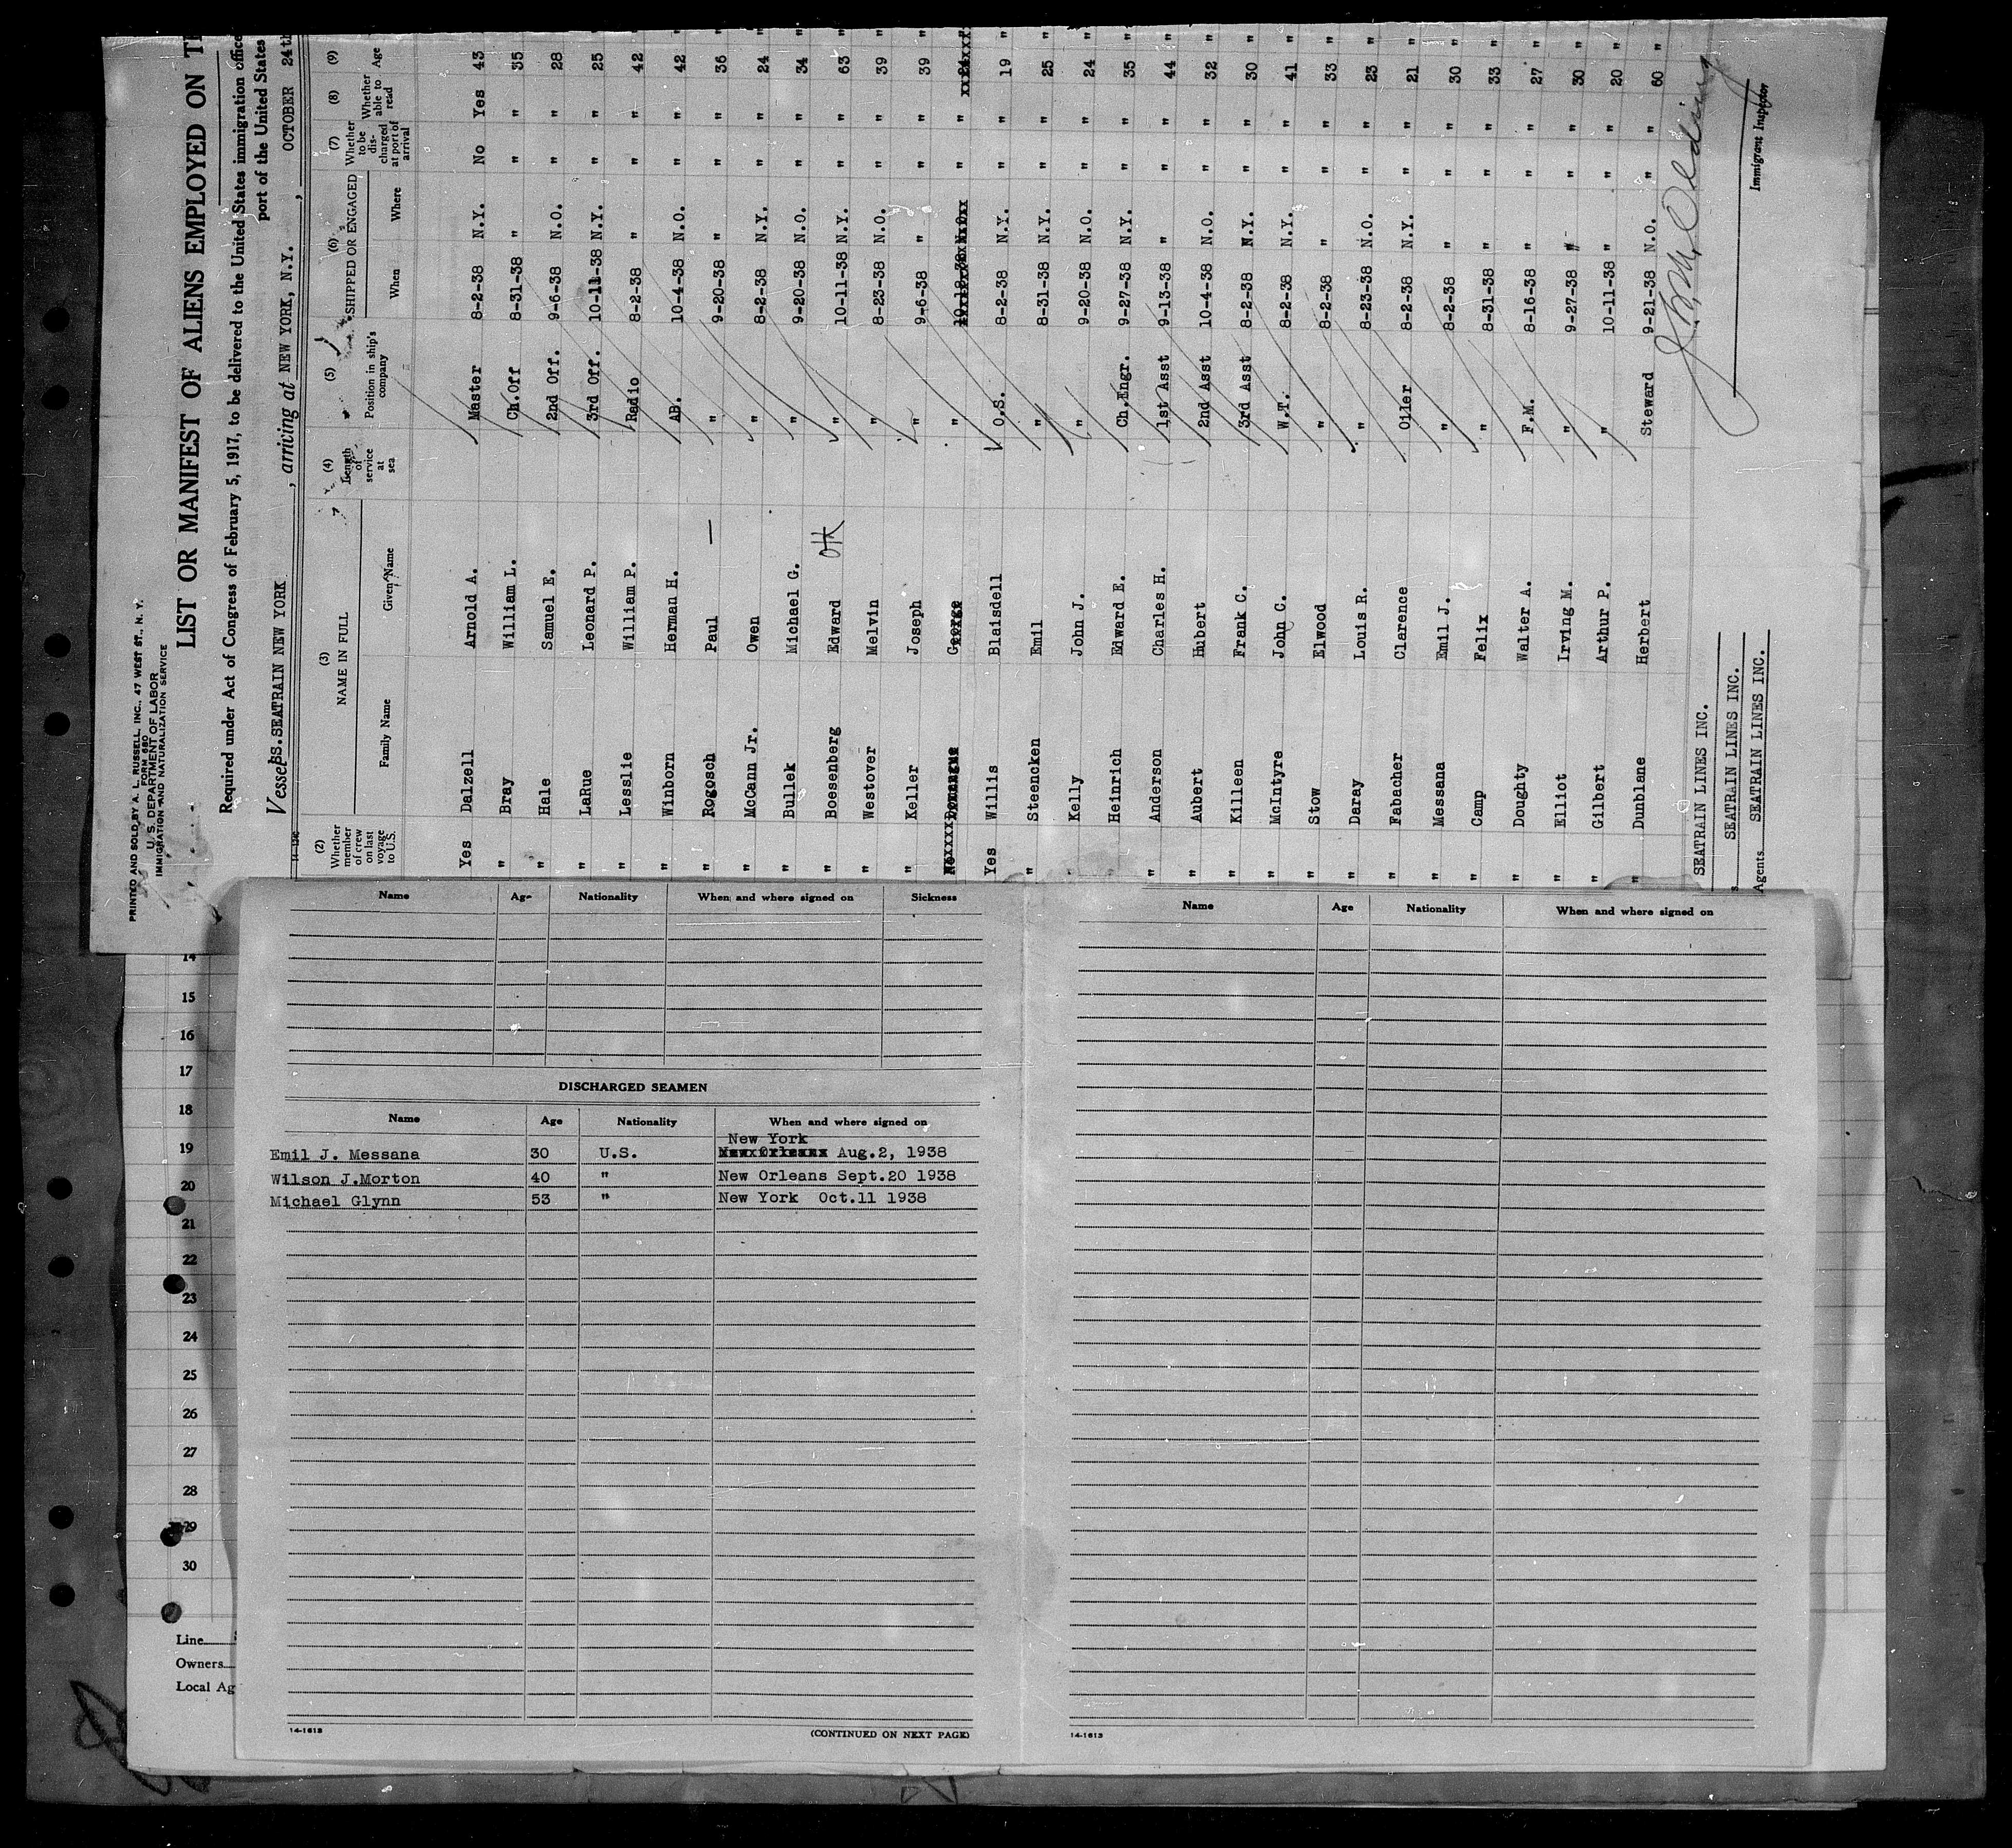 PRINTED AND SOLD BY A. L. RUSSELL, INC., 47 WEST ST., N. Y.
FORM 680
U. S. DEPARTMENT OF LABOR
IMMIGRATION AND NATURALIZATION SERVICE
LIST OR MANIFEST OF ALIENS EMPLOYED ON
Required under Act of Congress of February 5, 1917, to be delivered to the United States immigration
port of the United States
Vessel SS.SEATRAIN NEW YORK , arriving at NEW YORK, N.Y. , OCTOBER 24th
(2) (3) (4) (5) (6) (7) (8) (9)
Whether member of crew on last voyage to U.S. NAME IN FULL Length of service at sea Position in ship's company SHIPPED OR ENGAGED Whether to be discharged at port of arrival Whether able to read Age
Family Name Given Name When Where
Yes Dalzell Arnold A. Master 8-2-38 N.Y. No Yes 43 "
" Bray William L. Ch.Off 8-31-38 " " " 35 "
" Hale Samuel E. 2nd Off. 9-6-38 N.O. " " 28 "
" LaRue Leonard P. 3rd Off. 10-11-38 N.Y. " " 25 "
" Lesslie William P. Radio 8-2-38 " " " 42 "
" Winborn Herman H. AB. 10-4-38 N.O. " " 42 "
" Rogosch Paul — " 9-20-38 " " " 36 "
" McCann Jr. Owen " 8-2-38 N.Y. " " 24 "
" Bullek Michael G. " 9-20-38 N.O. " " 34 "
" Boesenberg Edward " 10-11-38 N.Y. " " 63 "
" Westover Melvin " 8-23-38 N.O. " " 39 "
" Keller Joseph " 9-6-38 " " " 39 "
George " " "
Yes Willis Blaisdell O.S. 8-2-38 N.Y. " " 19 "
" Steencken Emil " 8-31-38 N.Y. " " 25 "
" Kelly John J. " 9-20-38 N.O. " " 24 "
" Heinrich Edward E. Ch.Engr. 9-27-38 N.Y. " " 35 "
" Anderson Charles H. 1st Asst 9-13-38 " " " 44 "
" Aubert Hubert 2nd Asst 10-4-38 N.O. " " 32 "
" Killeen Frank C. 3rd Asst 8-2-38 N.Y. " " 30 "
" McIntyre John C. W.T. 8-2-38 N.Y. " " 41 "
" Stow Elwood " 8-2-38 " " " 33 "
" Daray Louis R. " 8-23-38 N.O. " " 23 "
" Fabacher Clarence Oiler 8-2-38 N.Y. " " 21 "
" Messana Emil J. " 8-2-38 " " " 30 "
" Camp Felix " 8-31-38 " " " 33 "
" Doughty Walter A. F.M. 8-16-38 " " " 27 "
" Elliot Irving M. " 9-27-38 " " " 30 "
" Gilbert Arthur P. " 10-11-38 " " " 20 "
" Dunblane Herbert Steward 9-21-38 N.O. " " 60 "
SEATRAIN LINES INC.
SEATRAIN LINES INC.
Agents SEATRAIN LINES INC.
Immigrant Inspector
Name Age Nationality When and where signed on Sickness
DISCHARGED SEAMEN
Name Age Nationality When and where signed on
New York
Emil J. Messana 30 U.S. New Orleans Aug.2, 1938
Wilson J.Morton 40 " New Orleans Sept.20 1938
Michael Glynn 53 " New York Oct.11 1938
14-1613 (CONTINUED ON NEXT PAGE)
Name Age Nationality When and where signed on
14-1613
14
15
16
17
18
19
20
21
22
23
24
25
26
27
28
29
30
Line
Owners
Local Ag